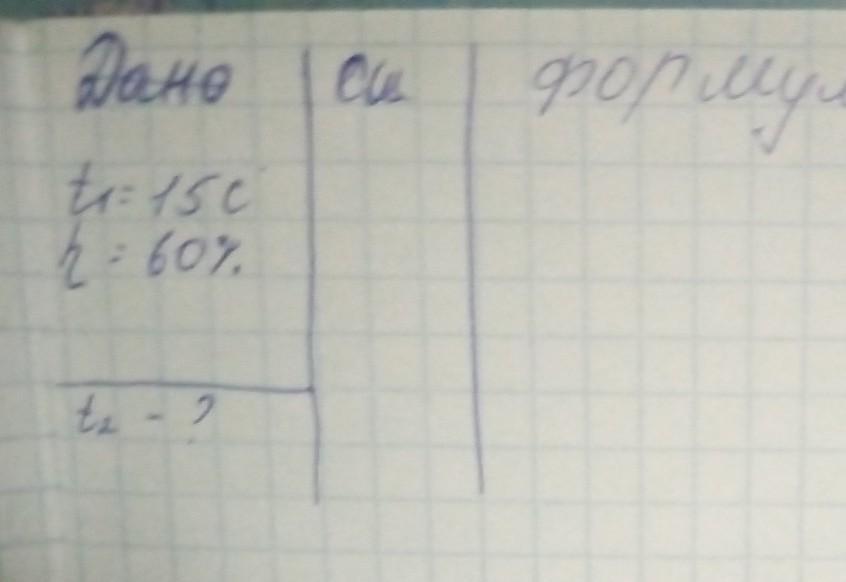 Дано си формул
t₁ = 15 С
η = 60%
t₂ - ?